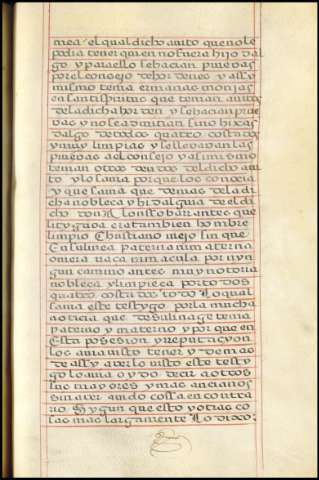 mea / el qual dicho auito que no le
podia tener quien no fuera hijo dal
go y para ello se hacian pruebas
por el consejo de hordenes y assy
mismo tenia ermanas monjas
en santispiritus que tenian auito
de la dicha horden y se hacian prue
uas y no le admitian sino hixas
dalgo de todos quatro costados
y muy limpias y se lleuauan las
pruebas a el consejo y asi mismo
tenian otros deudos del dicho aui
to y lo sauia porque los conoce
y que sauia que demas de la di
cha nobleca y hidalguia de el di
cho don Alonsso barrantes que
litygaba era tambien hombre
limpio Christiano viejo sin que
en su linea paterna ni materna
vuiera raca ni macula por nyn
gun camino antes muy notoria
nobleca y limpieca por todos
quatro costados todo lo qual
sauia este testygo por la mucha
noticia que de su linage tenia
paterno y materno y por que en
esta posesion y reputacyon
los auia visto tener y demas
de assy aberlo visto este testy
go lo auia oydo decir a otros
sus mayores y mas ancianos
sin aber auido cossa en contra
rio Sygun que esto y otras co
sas mas largamente Lo dixo: